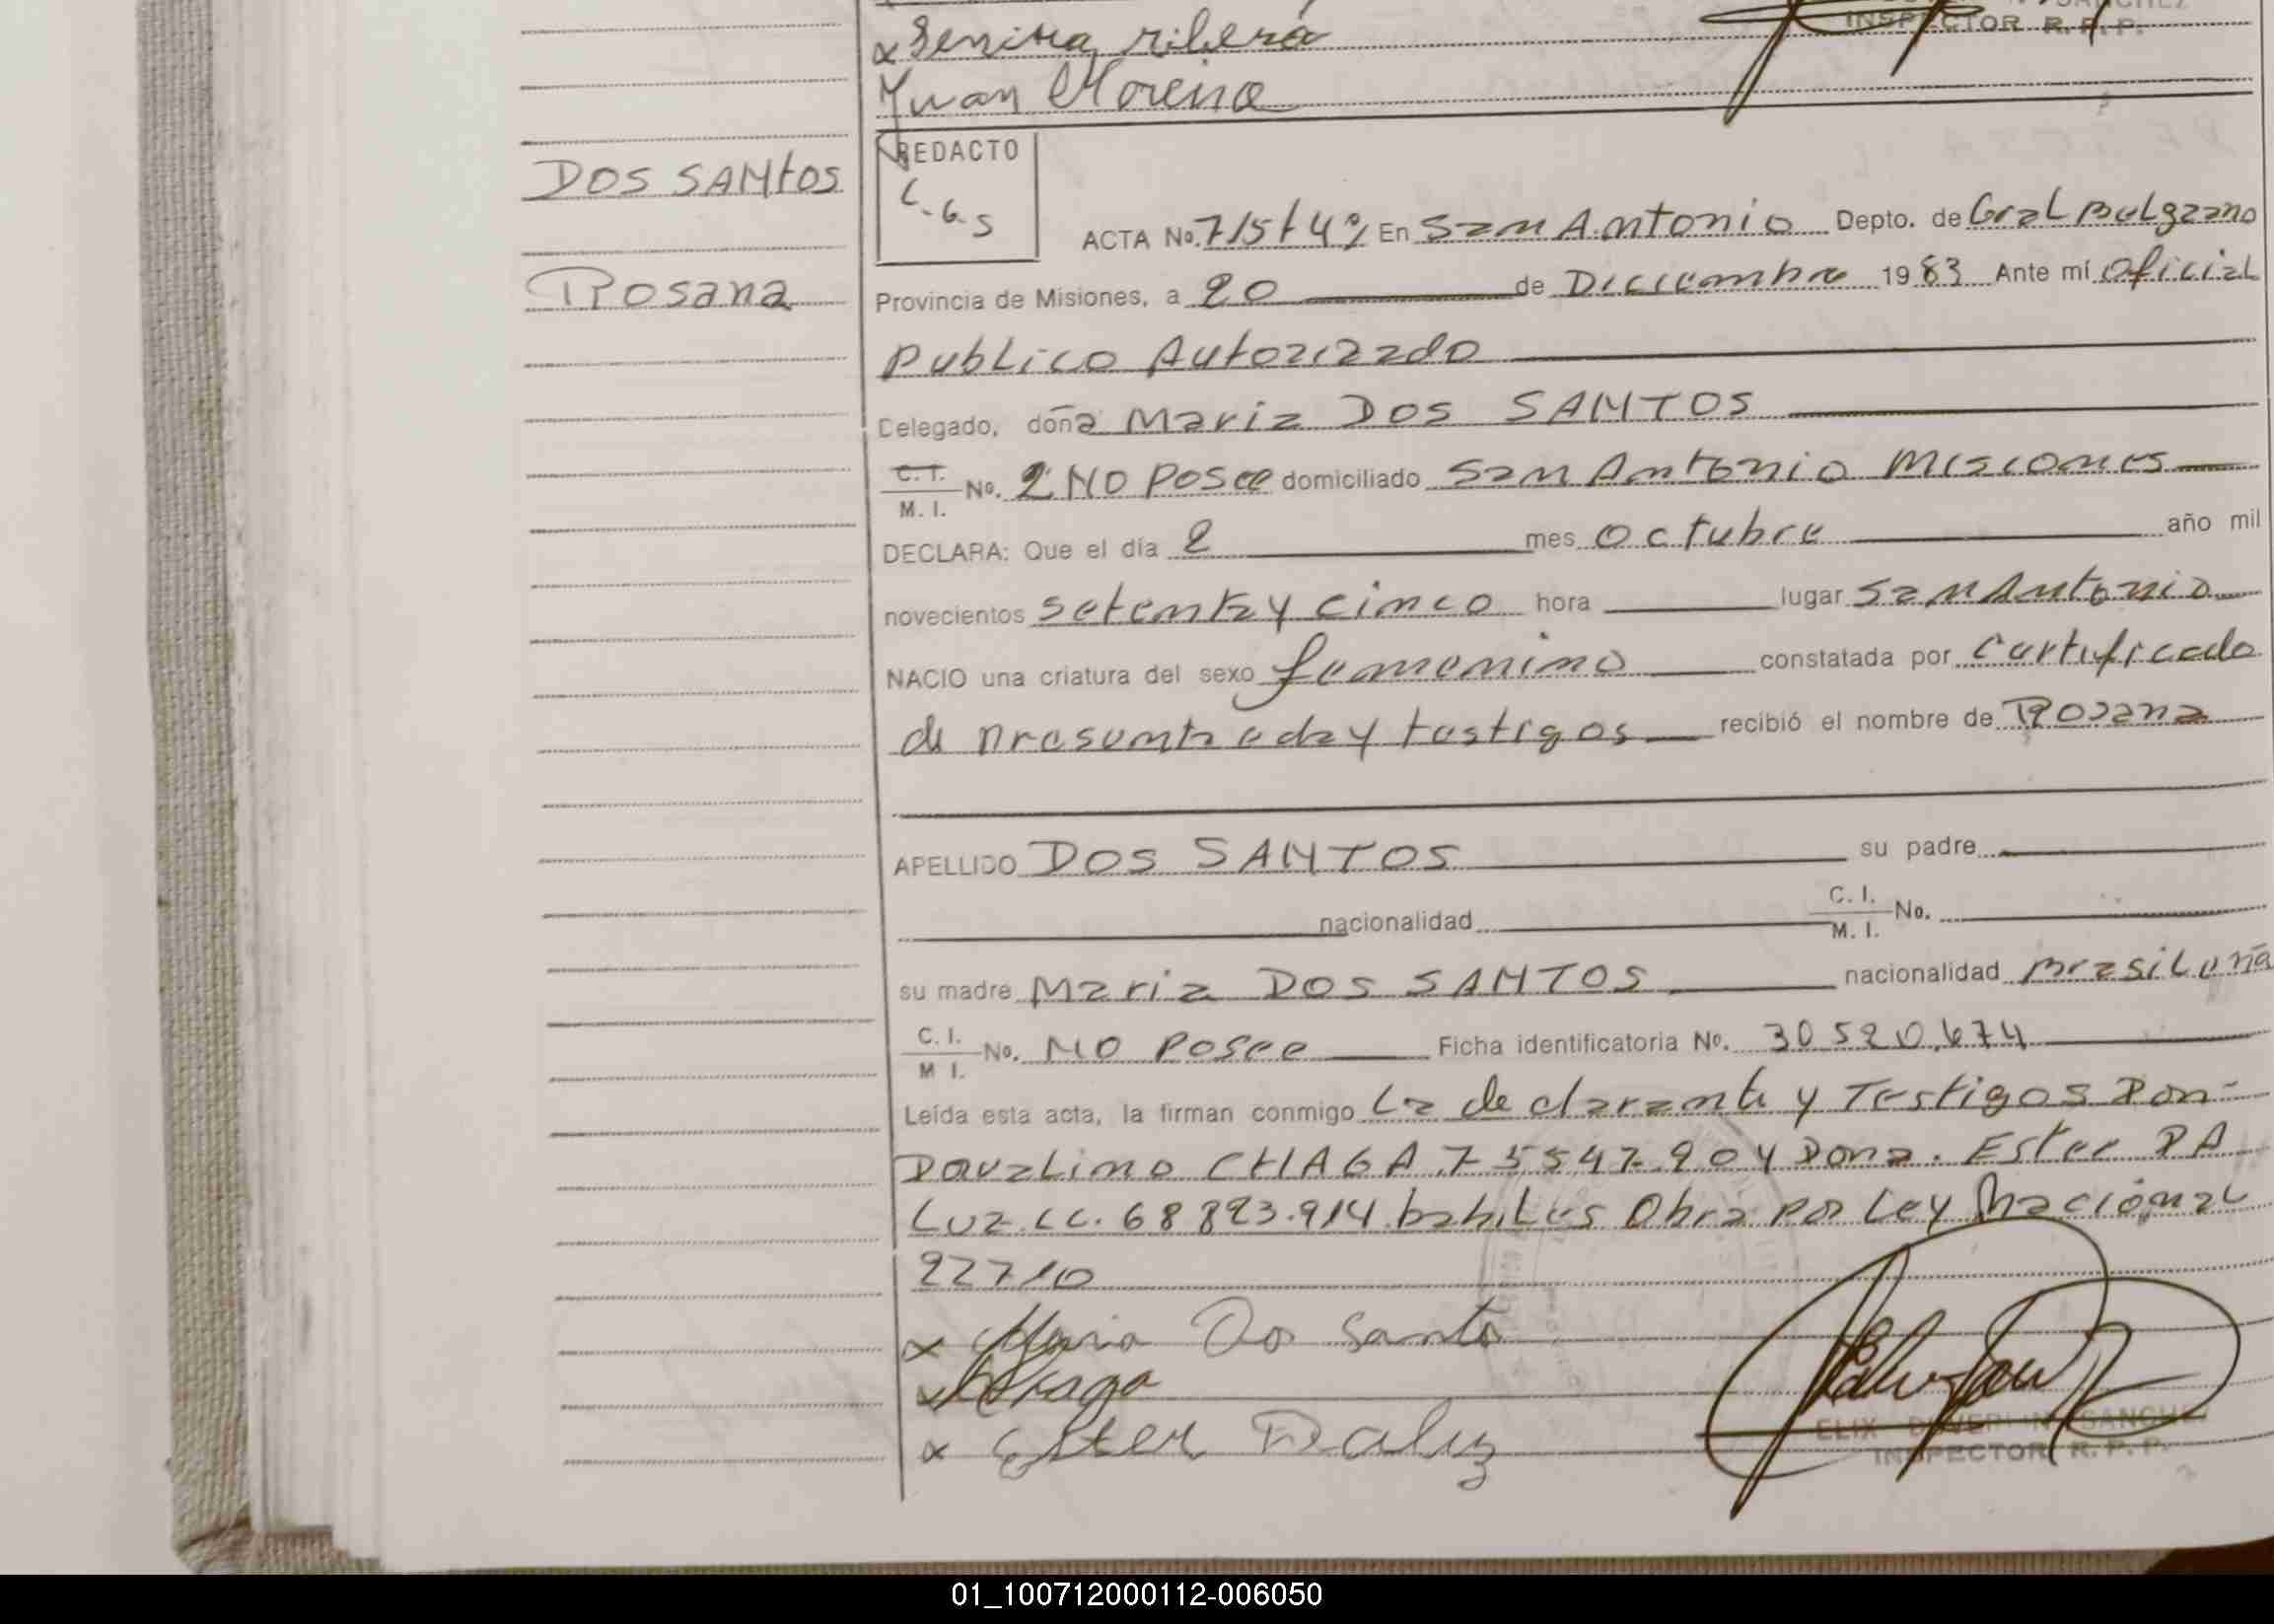 Benitra ribera
INSPECTOR R.P.P.
Juan Moreira
DOS SANtOS
Rosana
REDACTO
L.G.S
ACTA No. 715 t 4º En San Antonio Depto. de Gral Belgrano
Provincia de Misiones, a 20 de Diciembre 1983 Ante mí Oficial
Publico Autorizado
Delegado, doña Maria DOS SANTOS
C.I. M.I. No. 2 NO Posee domiciliado San Antonio Misiones
DECLARA: Que el día 2 mes Octubre año mil
novecientos setenta y cinco hora lugar San Antonio
NACIO una criatura del sexo femenino constatada por certificado
de presunta edad y testigos recibió el nombre de Rosana
APELLIDO DOS SANTOS su padre
nacionalidad C.I. M.I. No.
su madre Maria DOS SANTOS nacionalidad Brasileña
C.I. M I. No. NO Posee Ficha identificatoria No. 30520.674
Leída esta acta, la firman conmigo La declarante y Testigos Don
CHAGA 7 5547.90 y Dona. Ester DA
Luz LC. 68 823.914 habiles Obra por Ley Nacional
22710
x Maria Dos Santo
x Chaga
x Ester Daluz
SANCHEZ
INSPECTOR R.P.P.
01_100712000112-006050